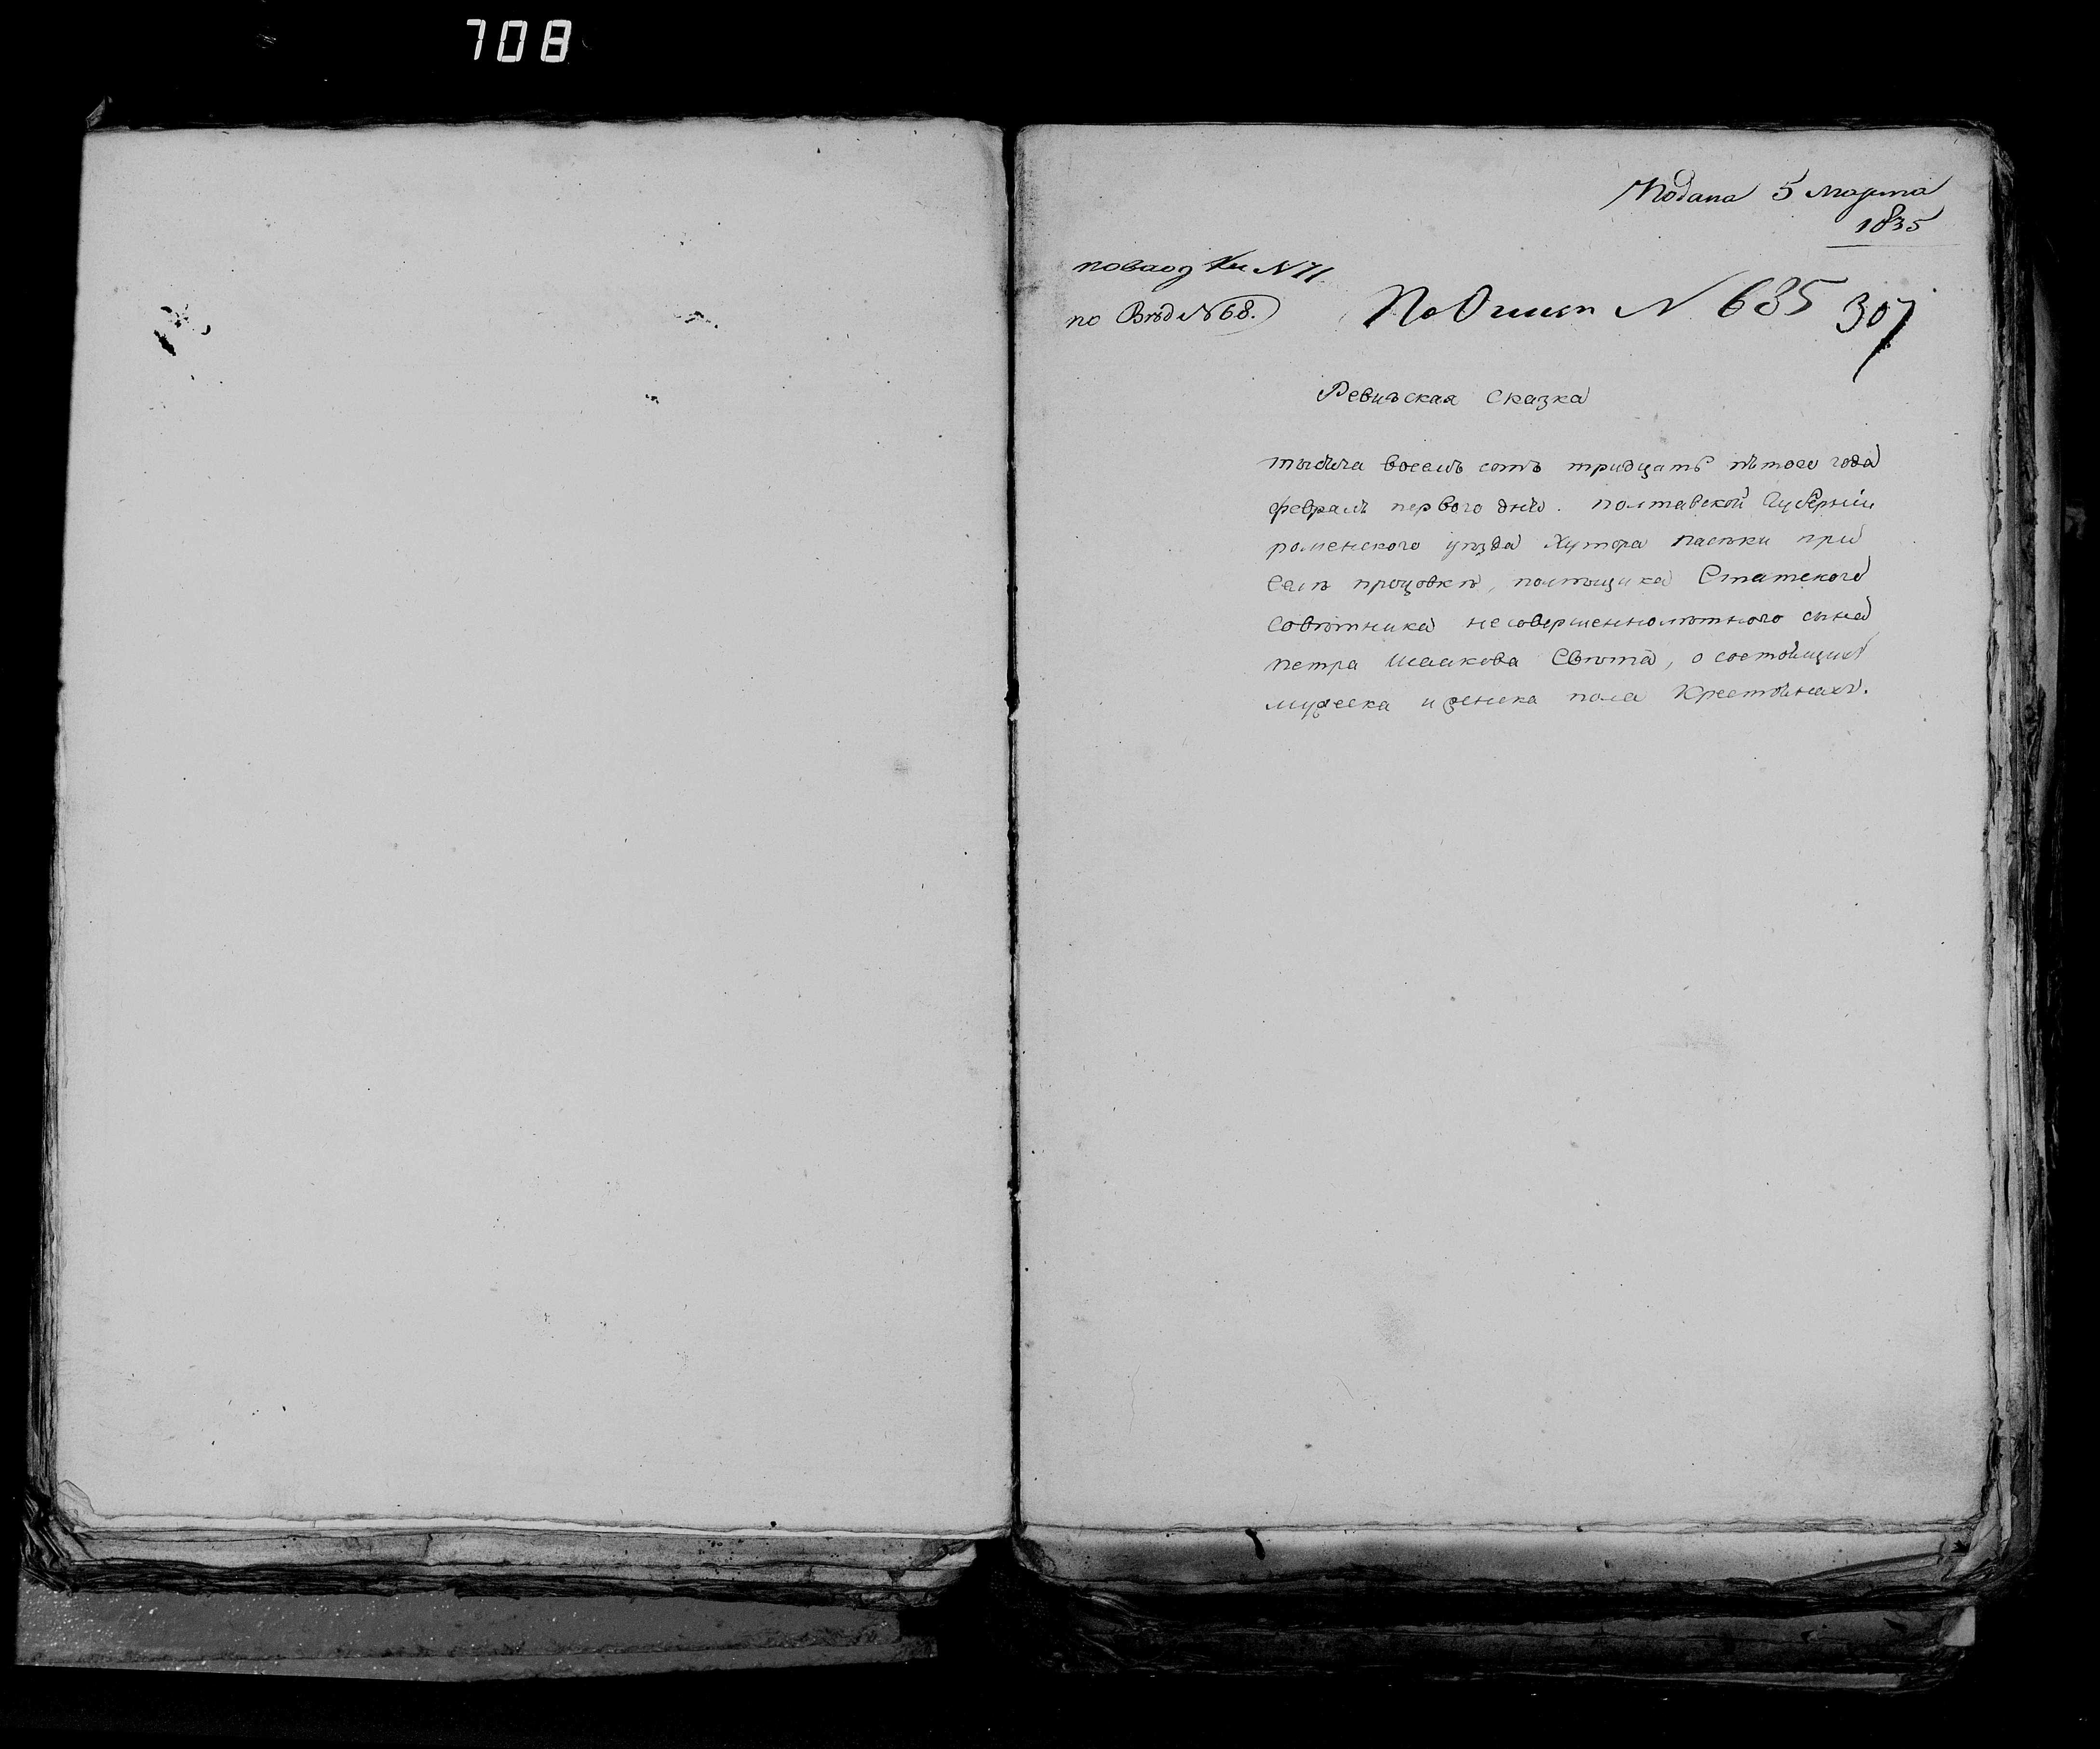 708
Подана 5 Марта
1835
по Ввод Кн N 71.
по Вѣд N 68.
По Описи N 635
307
Ревизская Сказка
тысяча восемь сотъ тридцать пятого года
февраля первого дня. полтавской Губерніи
роменского уезда Хутора пасеки при
Селѣ процовкѣ, помѣщика Статского
Совѣтника несовершеннолѣтного сына
петра Исакова Свѣта, о состоящихъ
мужеска и женска пола Крестьянахъ.